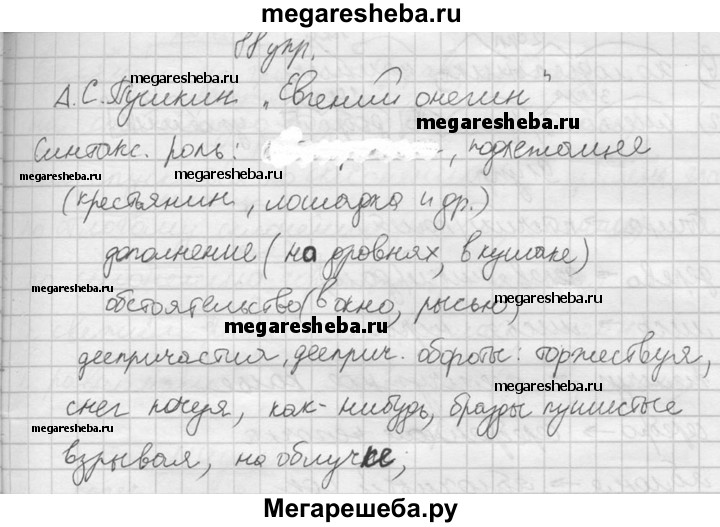 megaresheba.ru
88 упр.
megaresheba.ru
megaresheba.ru
А.С.Пушкин „Евгений онегин"
megaresheba.ru
Синтакс. роль: , подлежащее
megaresheba.ru
megaresheba.ru
(крестьянин, лошадка и др.)
дополнение (на дровнях, в кушаке)
megaresheba.ru
megaresheba.ru
обстоятельство (в окно, рысью)
megaresheba.ru
деепричастия, дееприч. обороты: торжествуя,
снег почуя, как-нибудь, бразды пушистые
megaresheba.ru
megaresheba.ru
взрывая, на облучке,
Мегарешеба.ру